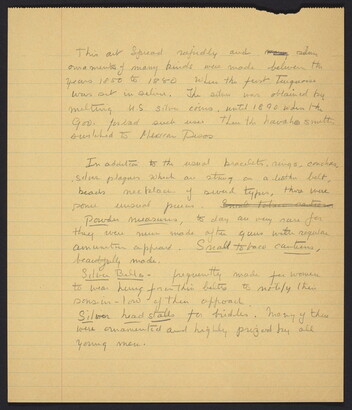 This art spread rapidly and many silver
ornaments of many kinds were made between the
years 1850 to 1880. When the first Turquoise
were set in silver. The silver was obtained by
melting U.S. silver coins, until 1890 when the
Gov. forbad such use. Then the Navaho smith
switched to Mexican Pesos.
In addition to the usual bracelets, rings, conchas,
silver plaques which are strung on a leather belt,
beads necklaces of several types, there were
some unusual pieces. Small tobacco canteens
Powder measures, to day are very rare for
they were never made after guns with regular
ammunition appeared. Small tobacco canteens,
beautifully made.
Silver Bells - frequently made for women
to wear hung from their belts to notify their
sons-in-law of their approach.
Silver head stalls for bridles. Many of these
were ornamented and highly prized by all
young men.